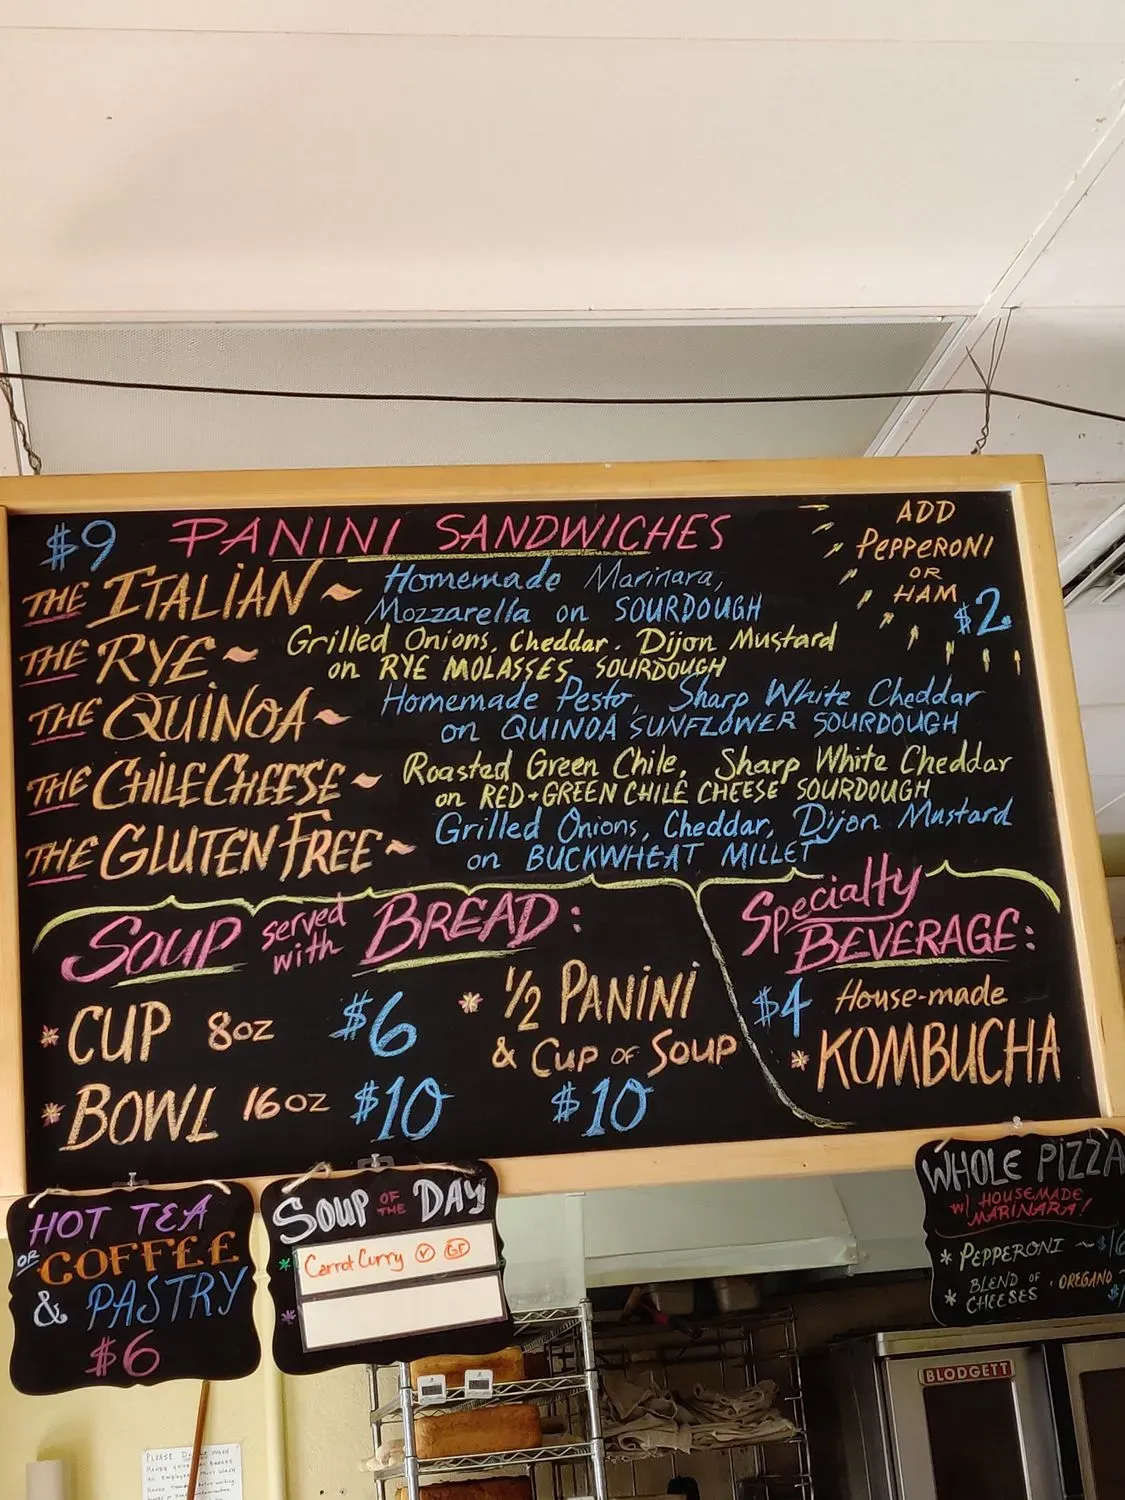 $9 PANINI SANDWICHES
ADD
PEPPERONI
OR
HAM
$2.
THE ITALIAN ~ Homemade Marinara,
Mozzarella on SOURDOUGH
THE RYE ~ Grilled Onions, Cheddar, Dijon Mustard
on RYE MOLASSES SOURDOUGH
THE QUINOA ~ Homemade Pesto, Sharp White Cheddar
on QUINOA SUNFLOWER SOURDOUGH
THE CHILE CHEESE ~ Roasted Green Chile, Sharp White Cheddar
on RED + GREEN CHILE CHEESE SOURDOUGH
THE GLUTEN FREE ~ Grilled Onions, Cheddar, Dijon Mustard
on BUCKWHEAT MILLET
SOUP served with BREAD:
* CUP 8oz $6
* BOWL 16oz $10
* 1/2 PANINI
& CUP OF SOUP
$10
Specialty
BEVERAGE:
$4 House-made
* KOMBUCHA
HOT TEA
OR COFFEE
& PASTRY
$6
SOUP OF THE DAY
* Carrot Curry V GF
*
WHOLE PIZZA
W/ HOUSEMADE
MARINARA!
* PEPPERONI ~ $16
* BLEND OF CHEESES · OREGANO
BLODGETT
PLEASE